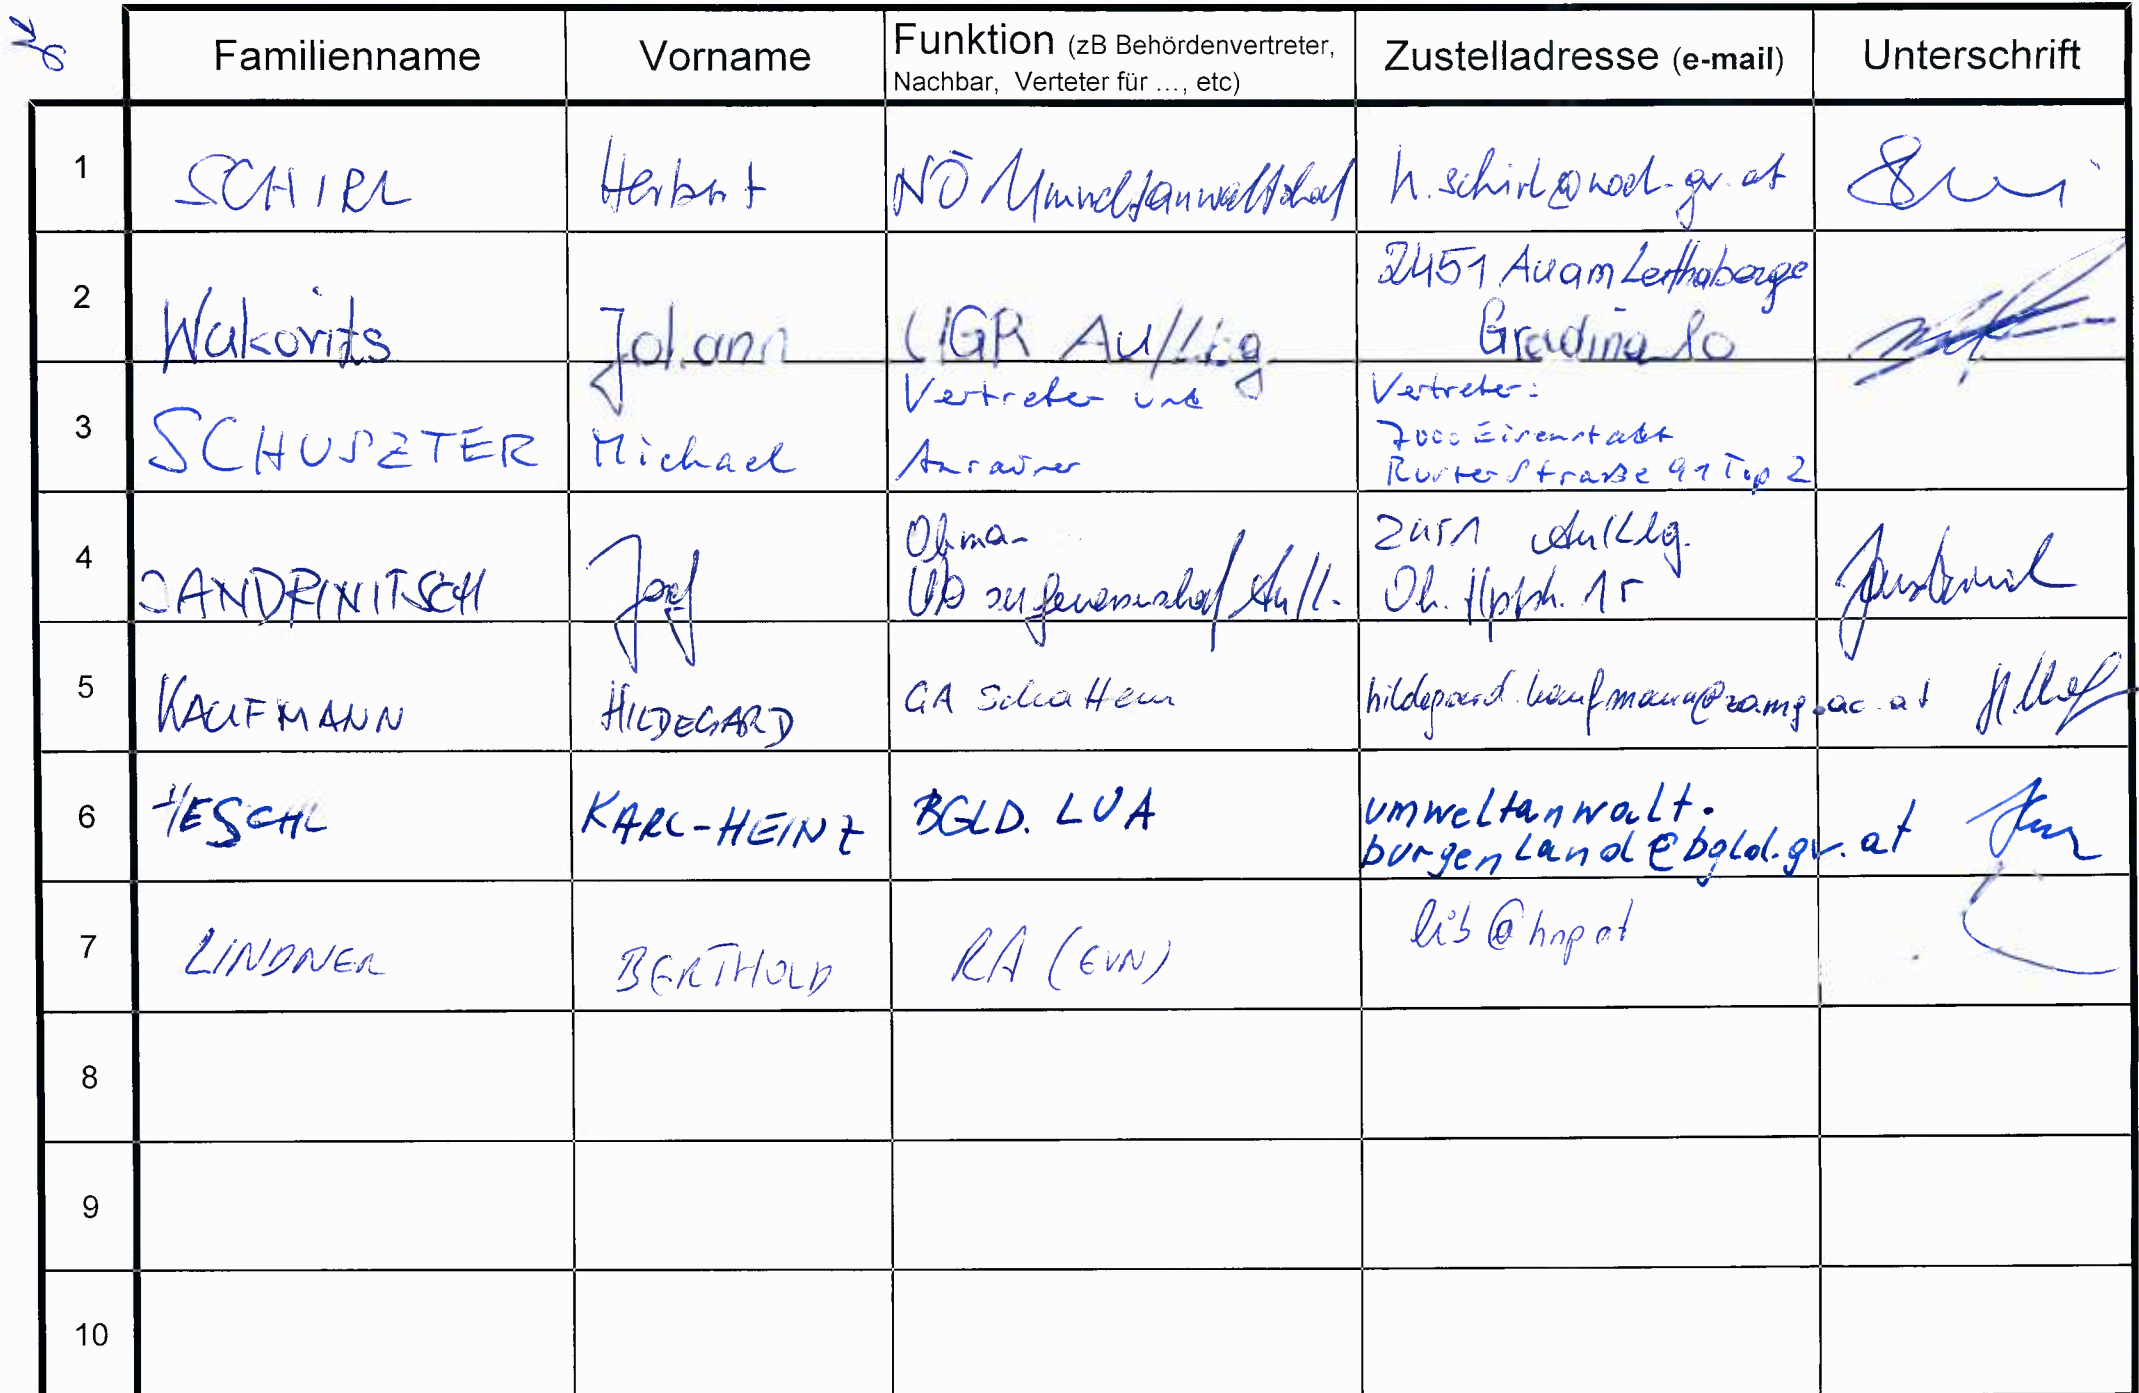 Familienname Vorname Funktion (zB Behördenvertreter, Nachbar, Verteter für ..., etc) Zustelladresse (e-mail) Unterschrift
1 SCHIRL Herbert NÖ Umweltanwaltschaft h.schirl@noel.gv.at
2 Wukovits Johann UGR Au/Lbg 2451 Au am Leithaberge
Gradina
3 SCHUSZTER Michael Vertreter und Anrainer Vertreter:
7000 Eisenstadt
Ruster Straße 91 Top 2
4 JANDRINITSCH Josef Obmann 2451 Au/Lbg.
Au/L. 15
5 KAUFMANN HILDEGARD GA Schatten hildegard.kaufmann@zamg.ac.at
6 HESCHL KARL-HEINZ BGLD. LUA umweltanwalt.
burgenland@bgld.gv.at
7 LINDNER BERTHOLD RA (EVN) lib@hnp.at
8
9
10